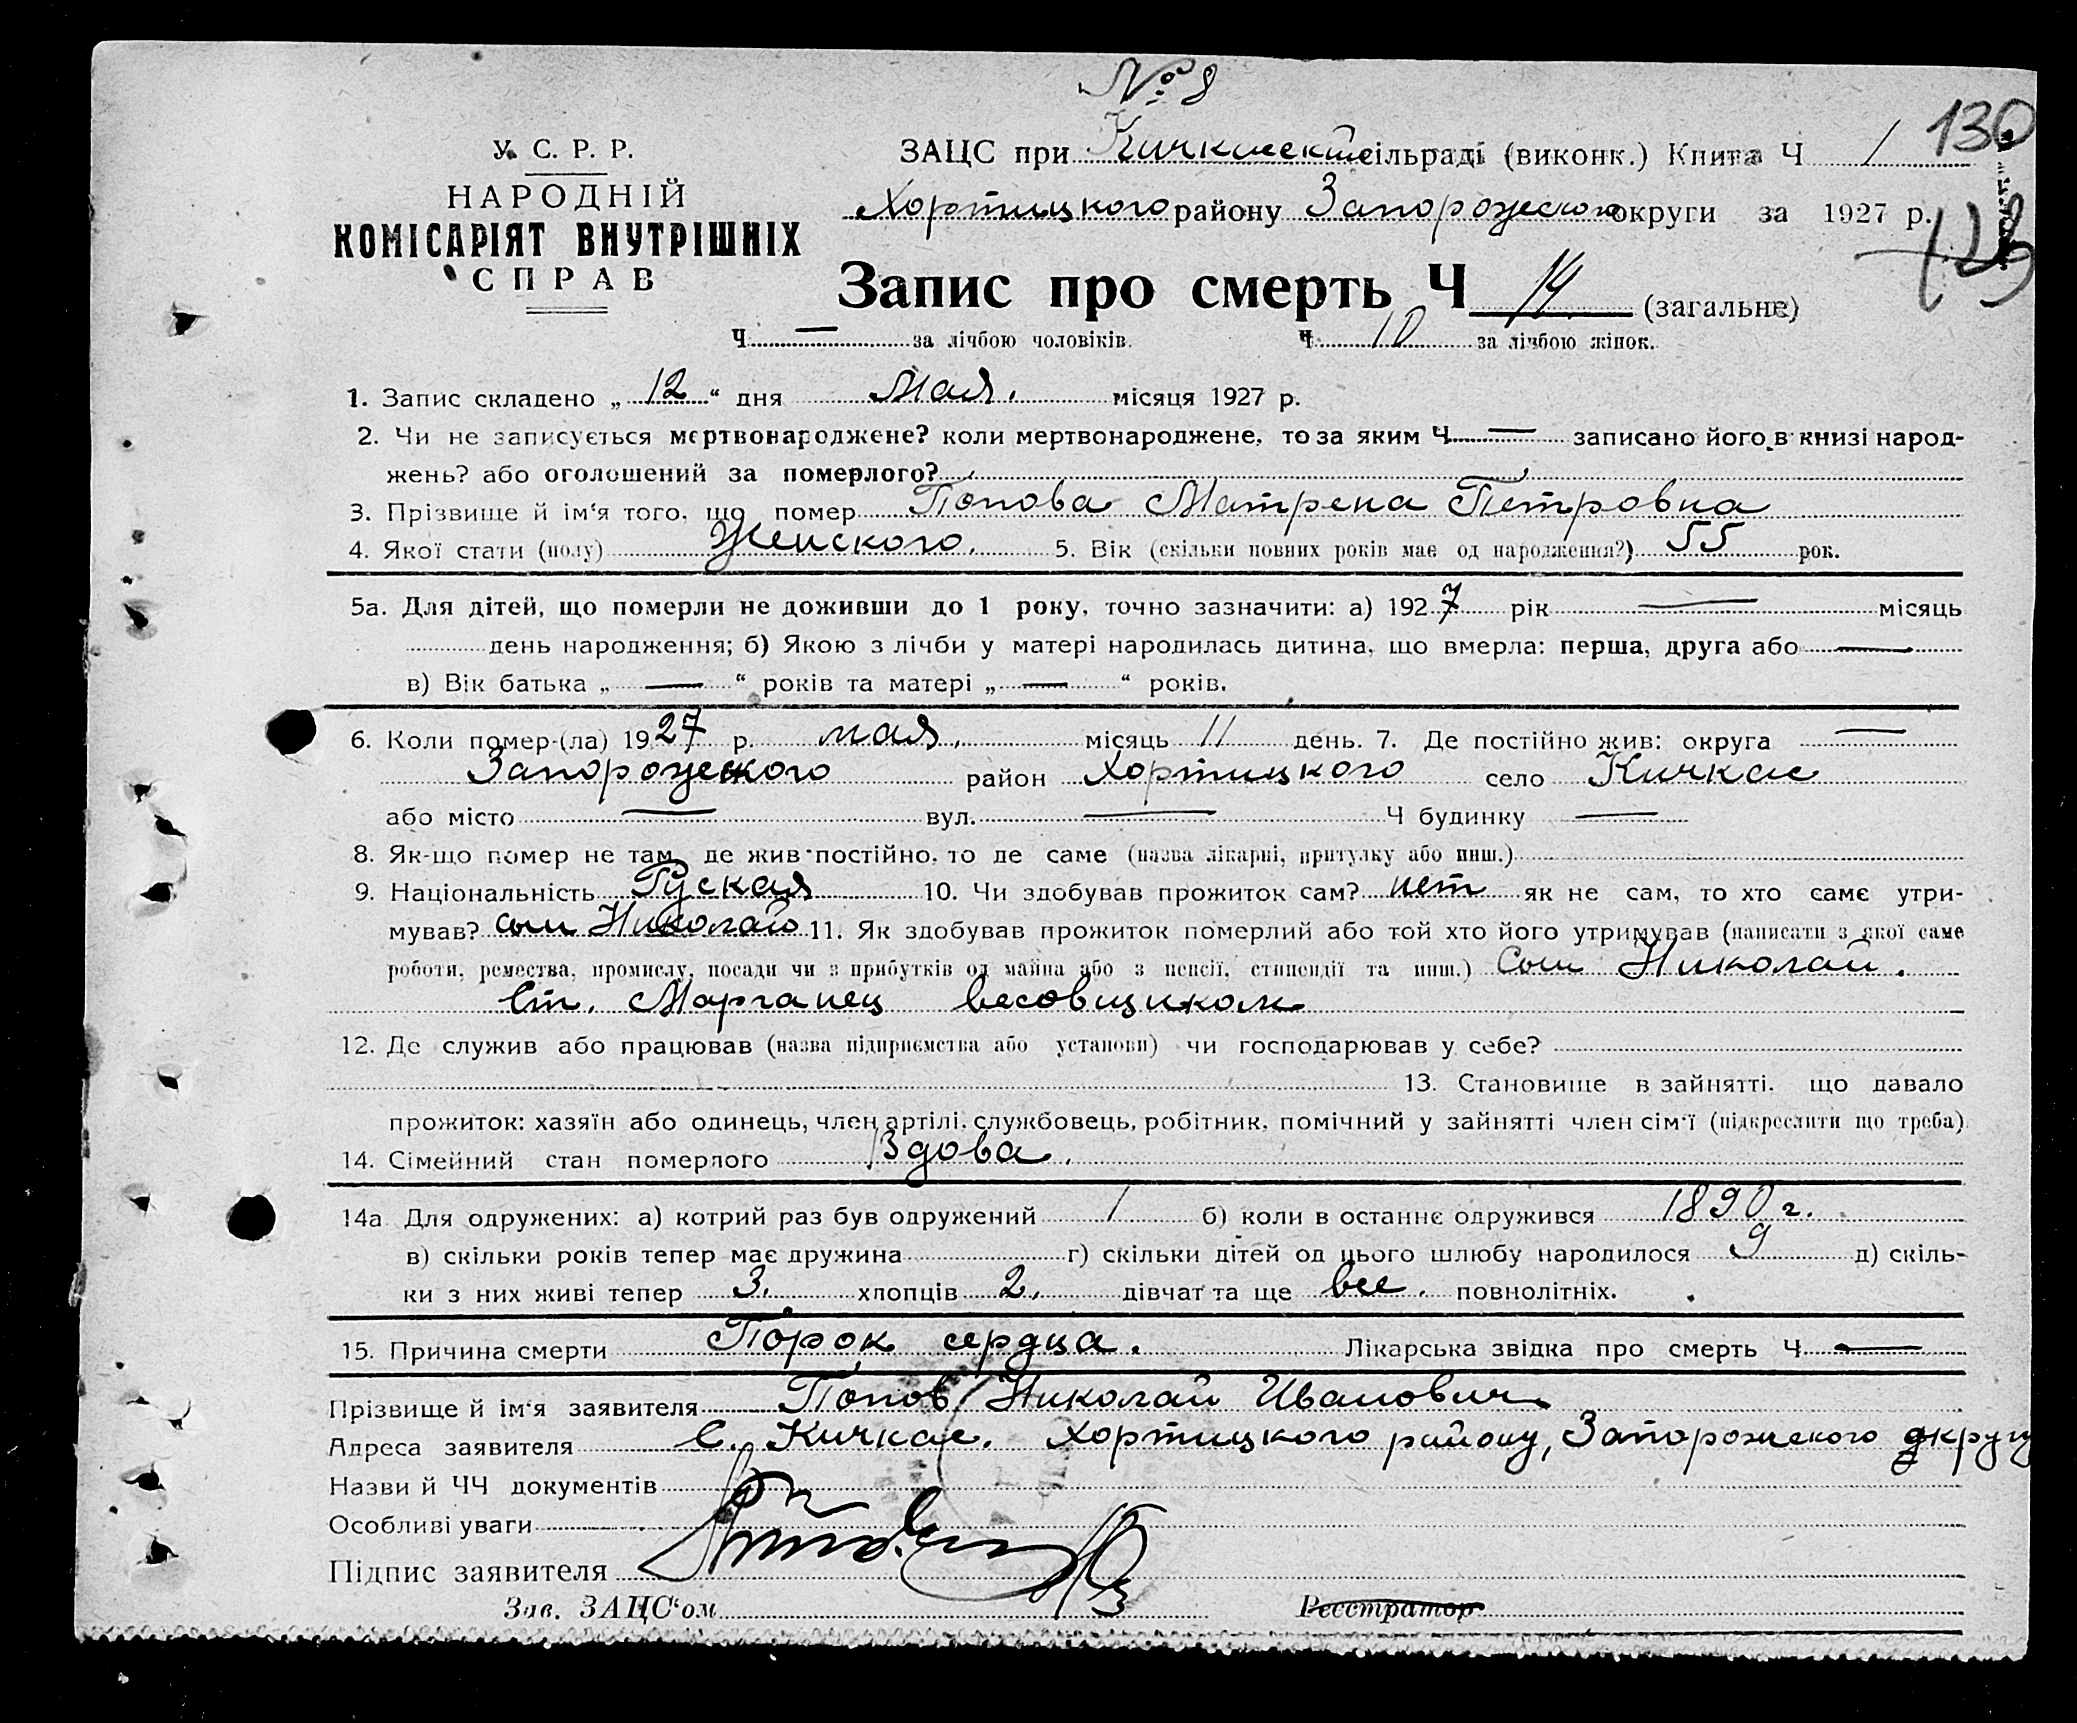 № 8
130
У. С. Р. Р.
НАРОДНІЙ
КОМІСАРІЯТ ВНУТРІШНІХ
СПРАВ
ЗАЦС при Кичкасской сільраді (виконк.) Книга Ч 1
Хортицкого району Запорожского округи за 1927 р.
Запис про смерть Ч 14 (загальне)
Ч — за лічбою чоловіків. Ч 10 за лічбою жінок.
1. Запис складено „ 12 “ дня Мая. місяця 1927 р.
2. Чи не записується мертвонароджене? коли мертвонароджене, то за яким Ч — записано його в книзі народ-
жень? або оголошений за померлого?
3. Прізвище й ім'я того, що помер Попова Матрена Петровна
4. Якої стати (полу) Женского. 5. Вік (скільки повних років має од народження?) 55 рок.
5а. Для дітей, що померли не доживши до 1 року, точно зазначити: а) 1927 рік — місяць
день народження; б) Якою з лічби у матері народилась дитина, що вмерла: перша, друга або —
в) Вік батька „ — “ років та матері „ — “ років.
6. Коли помер-(ла) 1927 р. мая. місяць 11 день. 7. Де постійно жив: округа —
Запорожского район Хортицкого село Кичкас
або місто — вул. — Ч будинку —
8. Як-що помер не там, де жив постійно, то де саме (назва лікарні, притулку або инш.)
9. Національність Руская 10. Чи здобував прожиток сам? нет як не сам, то хто самє утри-
мував? сын Николай 11. Як здобував прожиток померлий або той хто його утримував (написати з якої саме
роботи, ремества, промислу, посади чи з прибутків од майна або з пенсії, стипендії та инш.) Сын Николай.
Ст. Марганец весовщиком
12. Де служив або працював (назва підприємства або установи) чи господарював у себе?
13. Становище в зайнятті, що давало
прожиток: хазяїн або одинець, член артілі, службовець, робітник, помічний у зайнятті член сім'ї (підкреслити що треба)
14. Сімейний стан померлого Вдова.
14а Для одружених: а) котрий раз був одружений 1 б) коли в останнє одружився 1890 г.
в) скільки років тепер має дружина г) скільки дітей од цього шлюбу народилося 9 д) скіль-
ки з них живі тепер 3. хлопців 2. дівчат та ще все. повнолітніх.
15. Причина смерти Порок сердца. Лікарська звідка про смерть Ч —
Прізвище й ім'я заявителя Попов Николай Иванович
Адреса заявителя С. Кичкас. Хортицкого району, Запорожского округу
Назви й ЧЧ документів
Особливі уваги
Підпис заявителя
Зав. ЗАЦС'ом Реєстратор